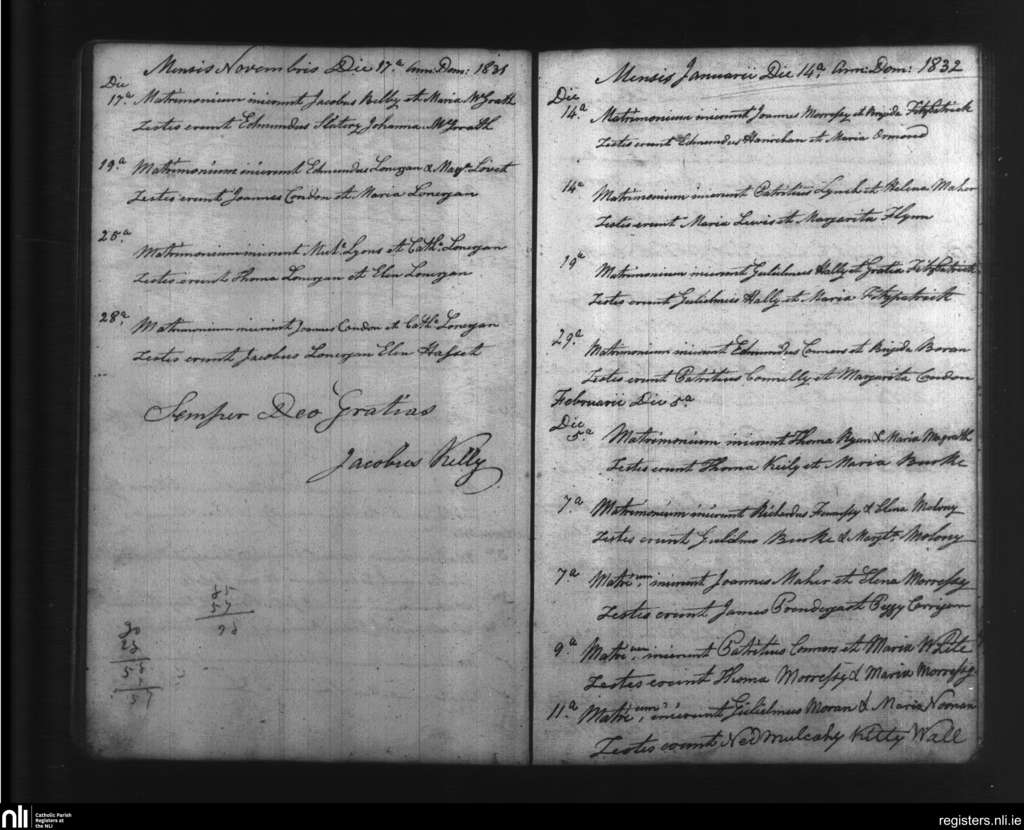 Mensis Novembris Die 17.a Ann: Dom: 1831
Die
17.a Matrimonium inierunt Jacobus Kelly et Maria McGrath
Testes erunt Edmundus Slatery Johanna McGrath
19.a Matrimonium inierunt Edmundus Lonegan & Margt. Lovet
Testes erunt Joannes Condon et Maria Lonegan
25.a
Matrimonium inierunt Mich. Lyons et Cath.a Lonegan
Testes erunt Thoma Lonegan et Elen Lonegan
28.a Matrimonium inierunt Joannes Condon et Cath.a Lonegan
Testes erunt Jacobus Lonergan Elen Hasset
Semper Deo Gratias
Jacobus Kelly
85
57
98
30
23
53
57
Mensis Januarii Die 14.a Ann: Dom: 1832
Die
14.a Matrimonium inierunt Joannes Morressy et Brigida Fitzpatrick
Testes erunt Edmundus Hanrahan et Maria Ormond
14a Matrimonium inierunt Patritius Lynch et Helena Maher
Testes erunt Maria Lewis et Margarita Flynn
19a Matrimonium inierunt Gulielmus Hally et Gratia Fitzpatrick
Testes erunt Gulielmus Hally et Maria Fitzpatrick
29.a
Matrimonium inierunt Edmundus Connors et Brigida Boran
Testes erunt Patritius Connelly et Margarita Condon
Februarii Die 5.a
Die
5.a Matrimonium inierunt Thoma Ryan & Maria Magrath
Testes erunt Thoma Keily et Maria Burke
7.a Matrimonium inierunt Richardus & Elena Molony
Testes erunt Gulielmo Burke & Margt. Molony
7.a Matri:um, inierunt Joannes Maher et Elena Morressy
Testes erunt James Prendergast Peggy Corrigan
9.a Matri:um, inierunt Patritius Connors et Maria White
Testes erunt Thoma Morressy & Maria Morressy
11.a Matri:um, inierunt Gulielmus Moran & Maria Noonan
Testes erunt Ned Mulcahy Kitty Wall
nli Catholic Parish
Registers at
the NLI
registers.nli.ie